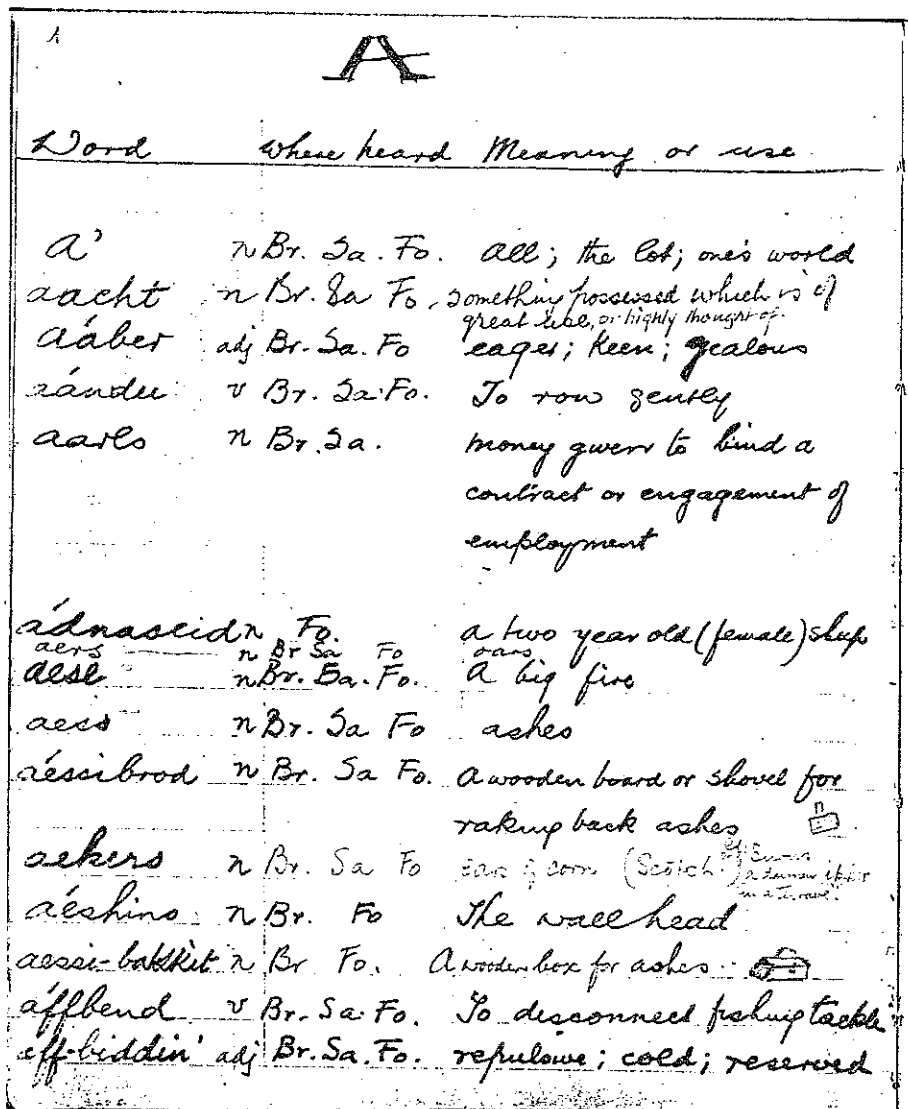 1
A
Word where heard Meaning or use
A' n Br. Sa. Fo. all; the lot; one's world
aacht n Br. Sa Fo. something possessed which is of
great use, or highly thought of.
aáber adj Br. Sa. Fo eager; keen; zealous
aándu v Br. Sa. Fo. To row gently
aarls n Br. Sa. money given to bind a
contract or engagement of
employment
ádnascid n Fo. a two year old (female) sheep
aers n Br Sa Fo oars
aese n Br. Sa. Fo. A big fire
aess n Br. Sa Fo ashes
áessibrod n Br. Sa Fo. a wooden board or shovel for
raking back ashes
aekers n Br. Sa Fo ears of corn (Scotch)
áeshins n Br. Fo The wall head
aessi-bakkit n Br Fo. A wooden box for ashes
áffbend v Br. Sa. Fo. To disconnect fishing tackle
áff-biddin' adj Br. Sa. Fo. repulsive; cold; reserved